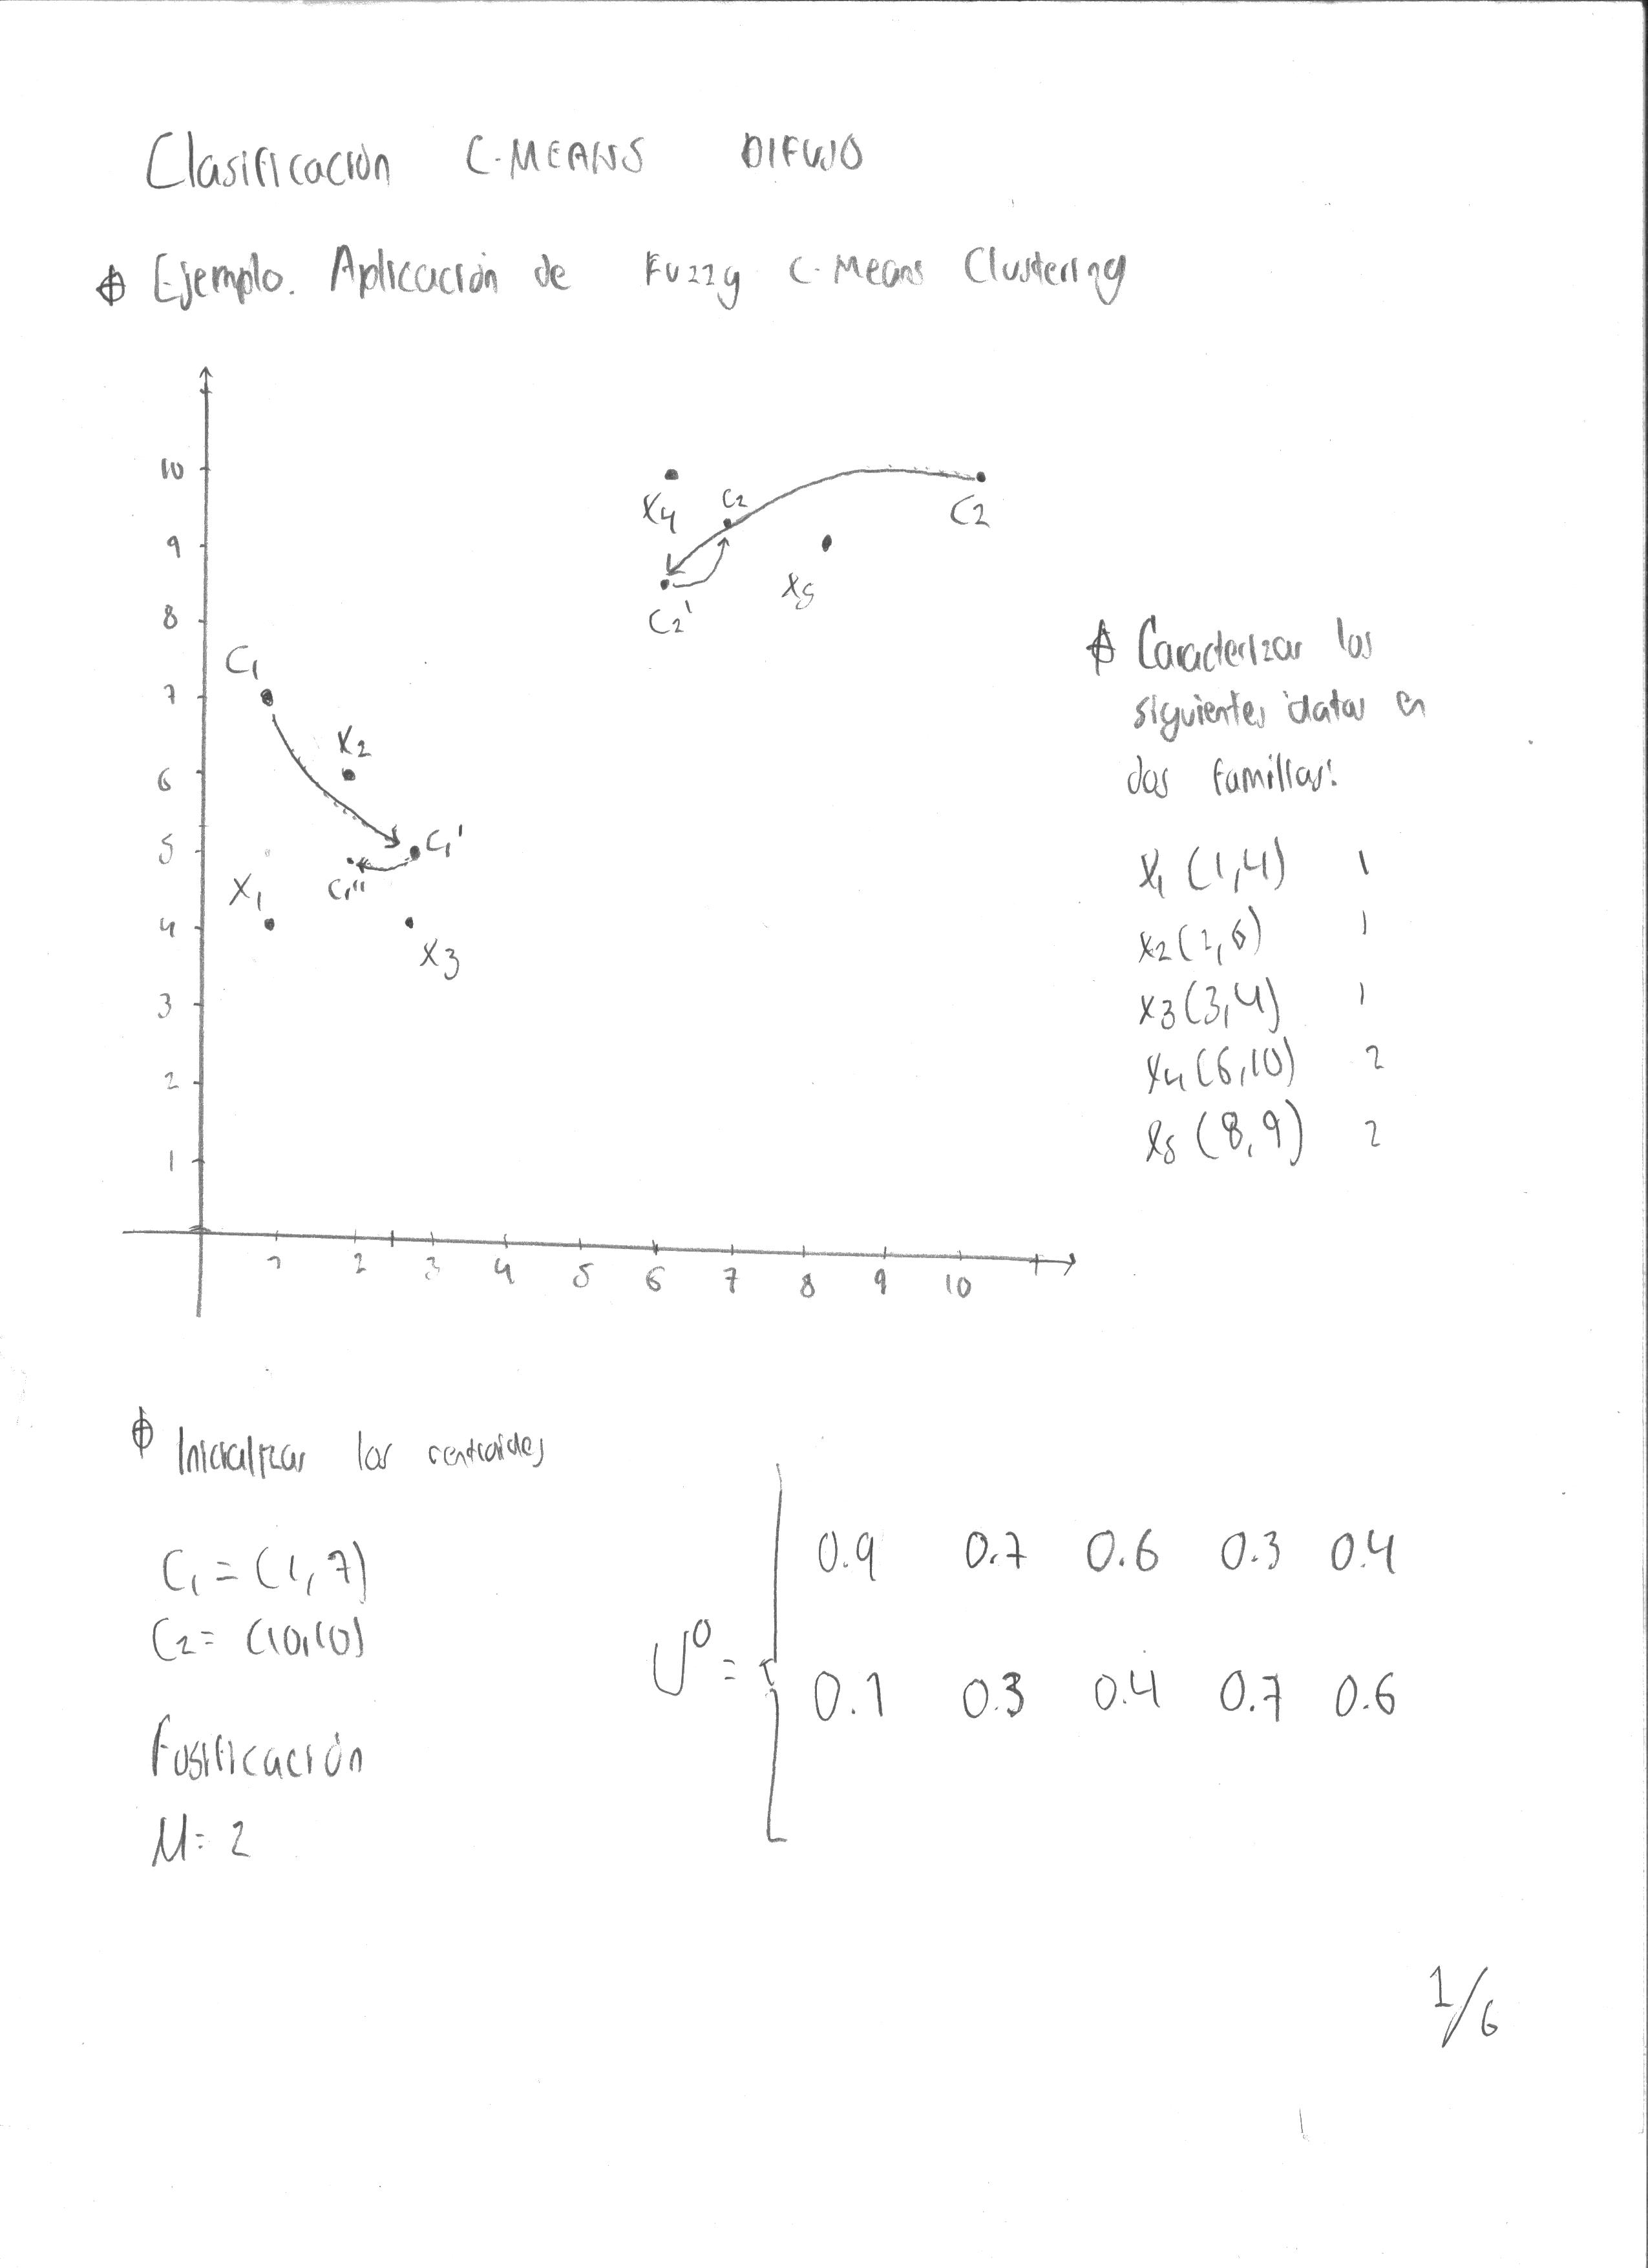 Clasificación C-MEANS DIFUSO
Ejemplo. Aplicación de Fuzzy C-Means Clustering
10
9
8
7
6
5
4
3
2
1
X4
C2
C2
X5
C2'
C1
X2
C1'
C1''
X1
X3
1 2 3 4 5 6 7 8 9 10
Caracterizar los
siguientes datos en
dos familias:
X1 (1,4) 1
X2 (2,6) 1
X3 (3,4) 1
X4 (6,10) 2
X5 (8,9) 2
Inicializar los centroides
C1 = (1,7)
C2 = (10,10)
Fusificación
M = 2
U⁰ =
0.9 0.7 0.6 0.3 0.4
0.1 0.3 0.4 0.7 0.6
1/6